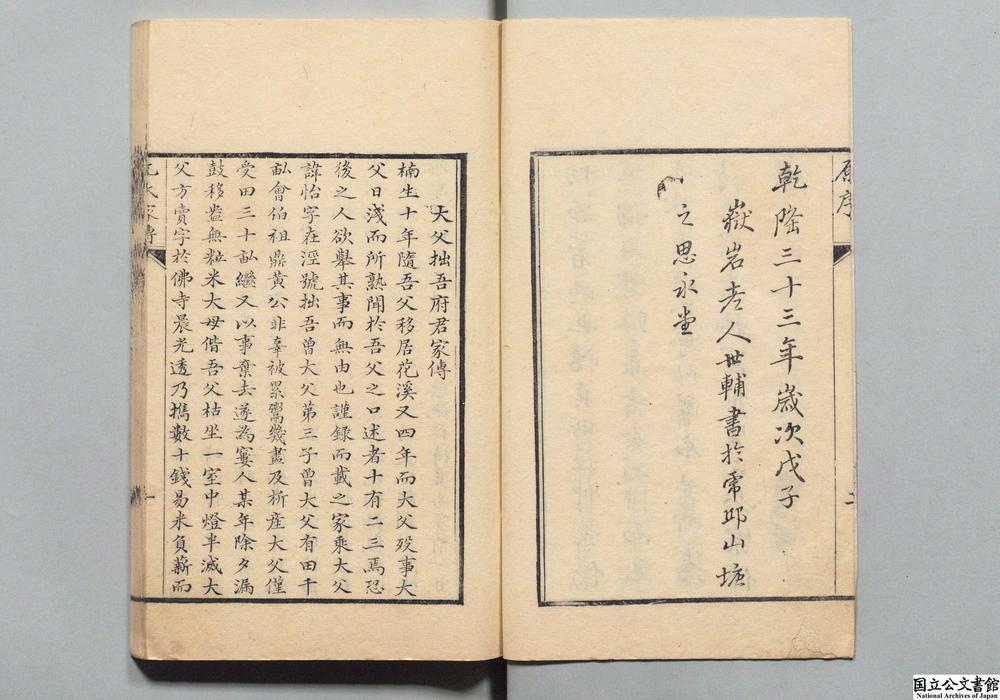 原序
乾隆三十三年歲次戊子
嶽岩老人世輔書於常邱山塘
之思永堂
二
大父拙吾府君家傳
楠生十年隨吾父移居花溪又四年而大父歿事大
父日淺而所熟聞於吾父之口述者十有二三焉恐
後之人欲舉其事而無由也謹録而載之家乘大父
諱怡字在涇號拙吾曾大父第三子曾大父有田千
畝會伯祖鼎黃公非辜被累鬻幾盡及析產大父僅
受田三十畝繼又以事棄去遂為窶人某年除夕漏
鼓移盎無粒米大母偕吾父枯坐一室中燈半滅大
父方賣字於佛寺晨光透乃攜數十錢易米負薪而
家傳
一
国立公文書館
National Archives of Japan